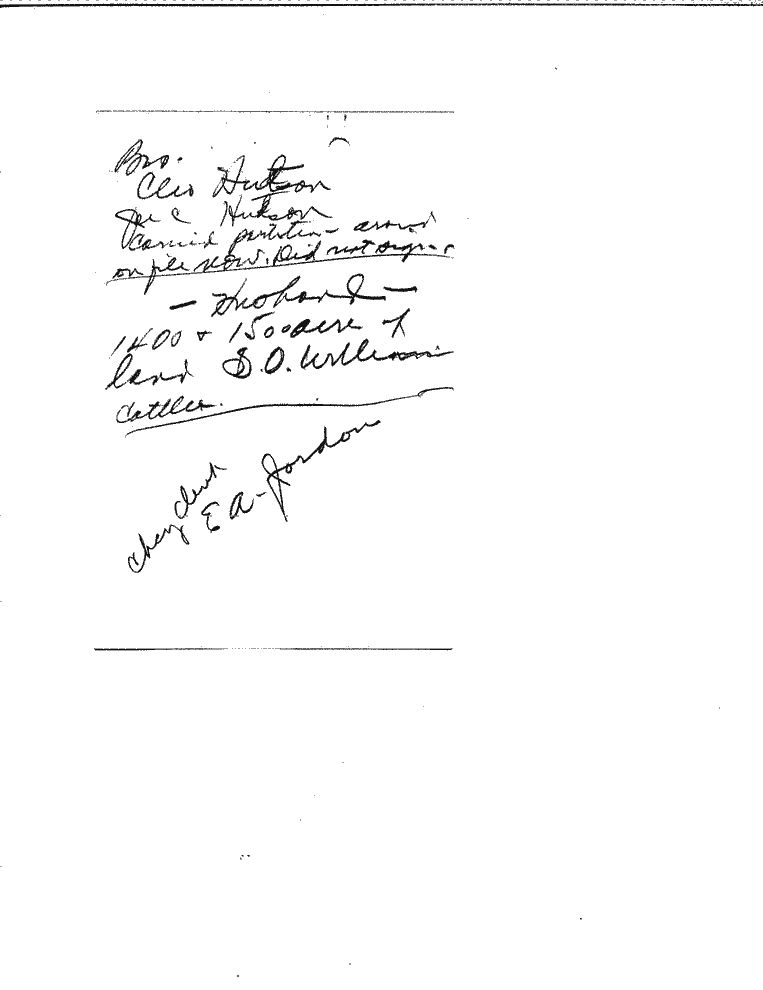 Bro.
Cleo Hudson
Joe C Hudson
Carried petition around
on file now. Did not sign
— Husband —
1400 + 1500 acre of
land S.O. Williams
Cattle
Chey Clerk
E A. Jordon